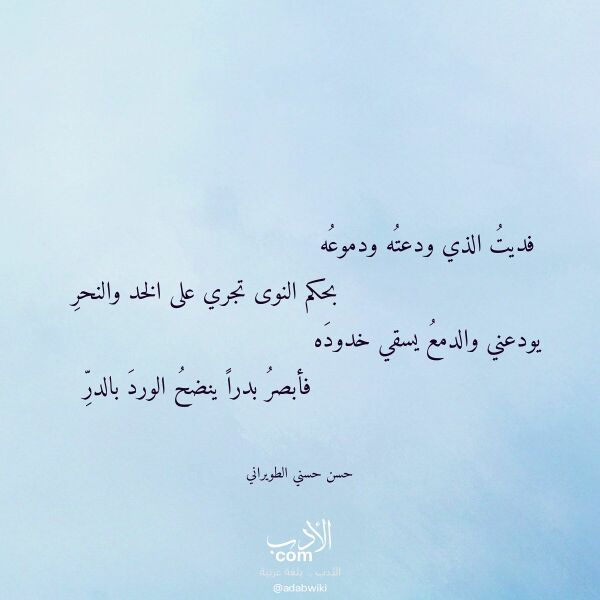 فديتُ الذي ودعتُه ودموعُه
بحكم النوى تجري على الخد والنحرِ
يودعني والدمعُ يسقي خدودَه
فأبصرُ بدراً ينضحُ الوردَ بالدرِّ
حسن حسني الطويراني
الأدب
com
الأدب .. بلغة عربية
@adabwiki